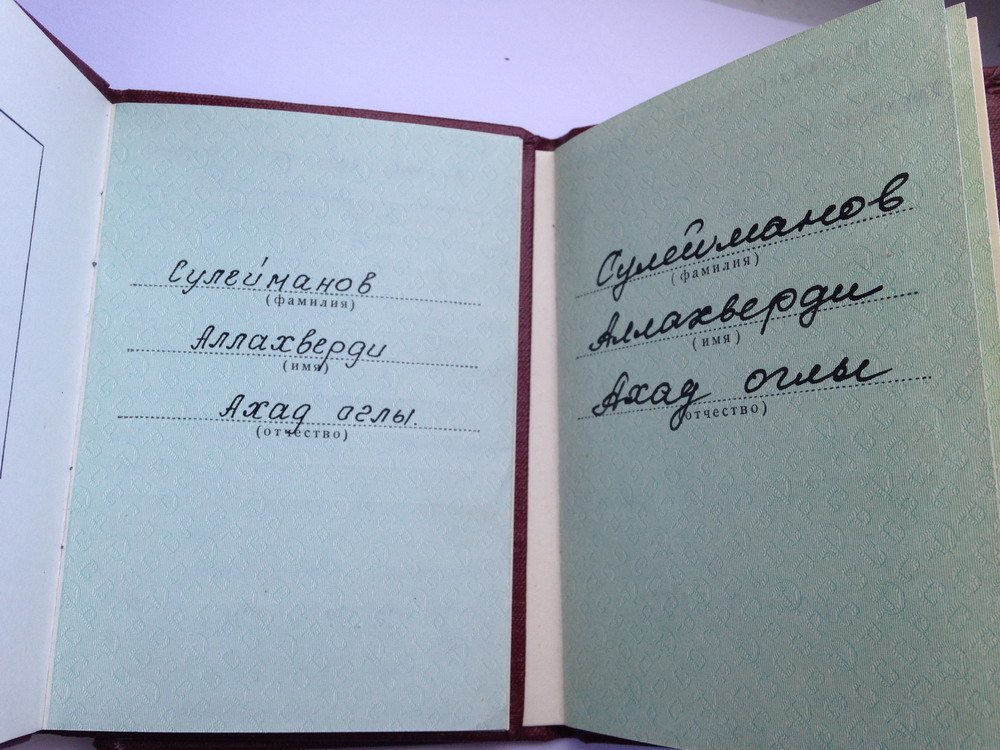 Сулейманов
(фамилия)
Аллахверди
(имя)
Ахад оглы.
(отчество)
Сулейманов
(фамилия)
Аллахверди
(имя)
Ахад оглы
(отчество)